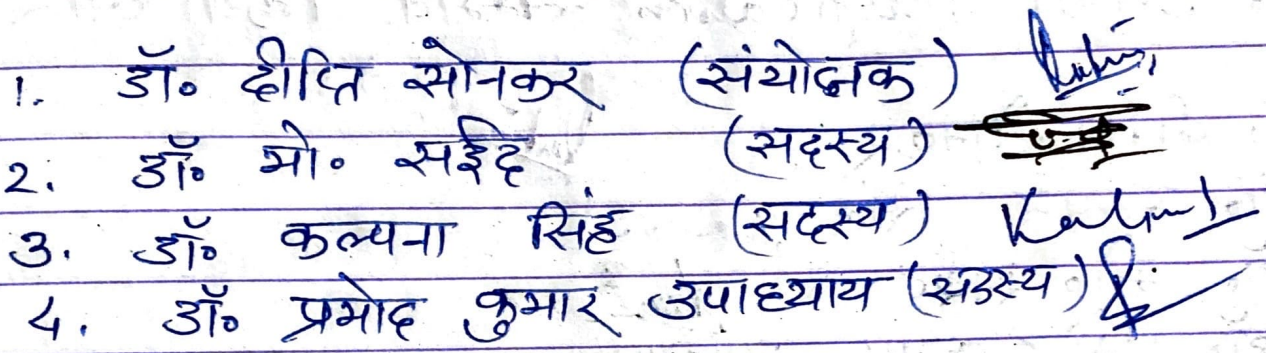 1. डॉ० दीप्ति सोनकर (संयोजक)
2. डॉ० मो० सईद (सदस्य)
3. डॉ० कल्पना सिंह (सदस्य)
4. डॉ० प्रमोद कुमार उपाध्याय (सदस्य)